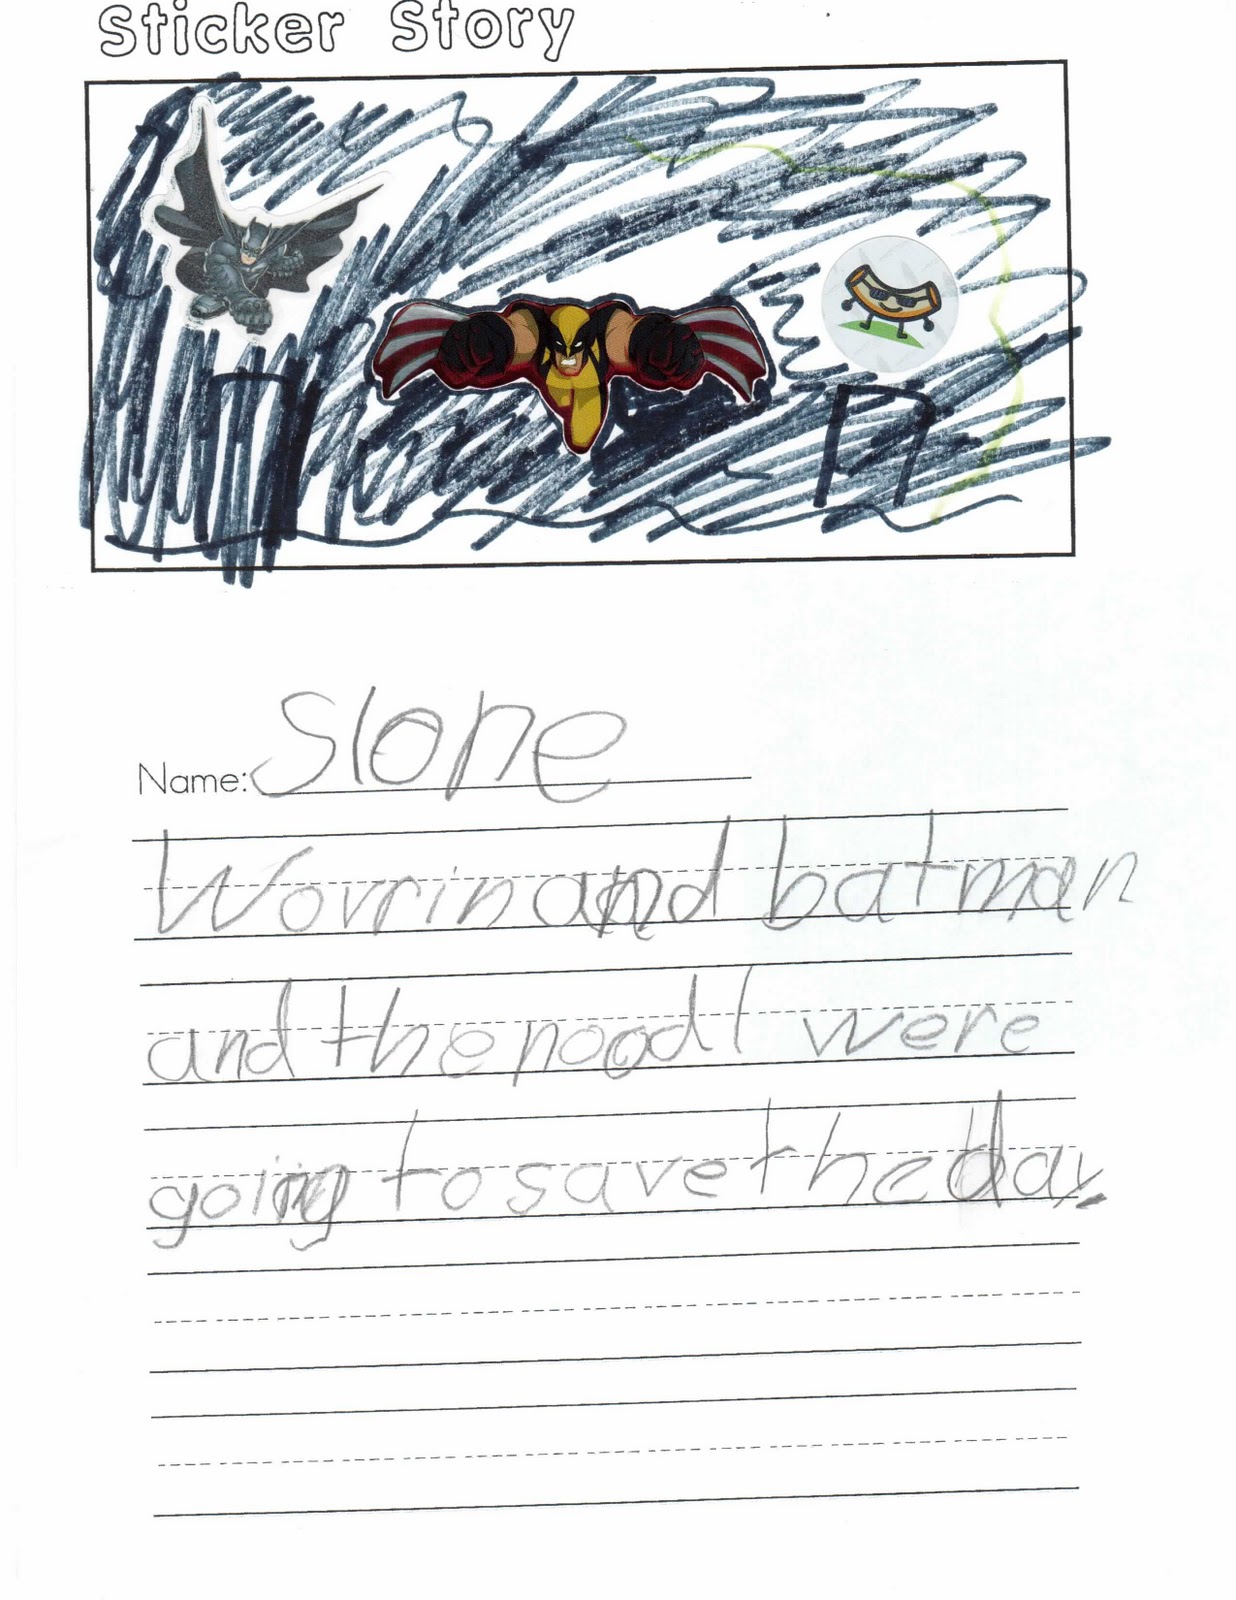 Sticker Story
Name: Slone
Worrin and batman
and the noodl were
going to save the day.